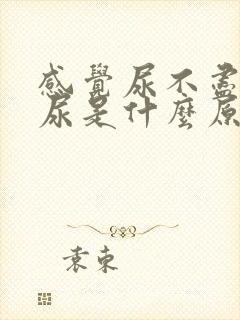 感覺尿不盡
尿是什麼原
袁東